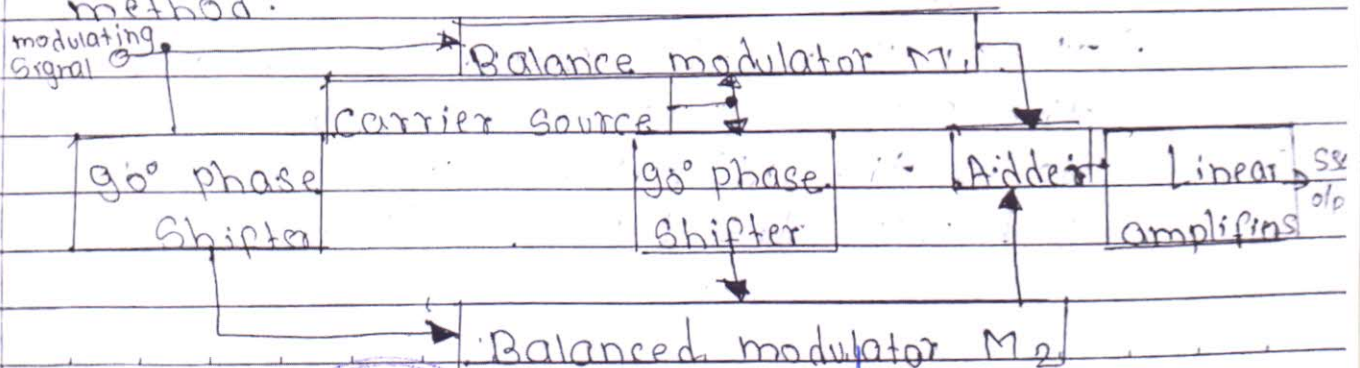 method.
modulating
Signal
Balance modulator M1
Carrier Source
90° phase
Shifter
90° phase
Shifter
Adder
Linear
amplifins
o/p
Balanced modulator M2